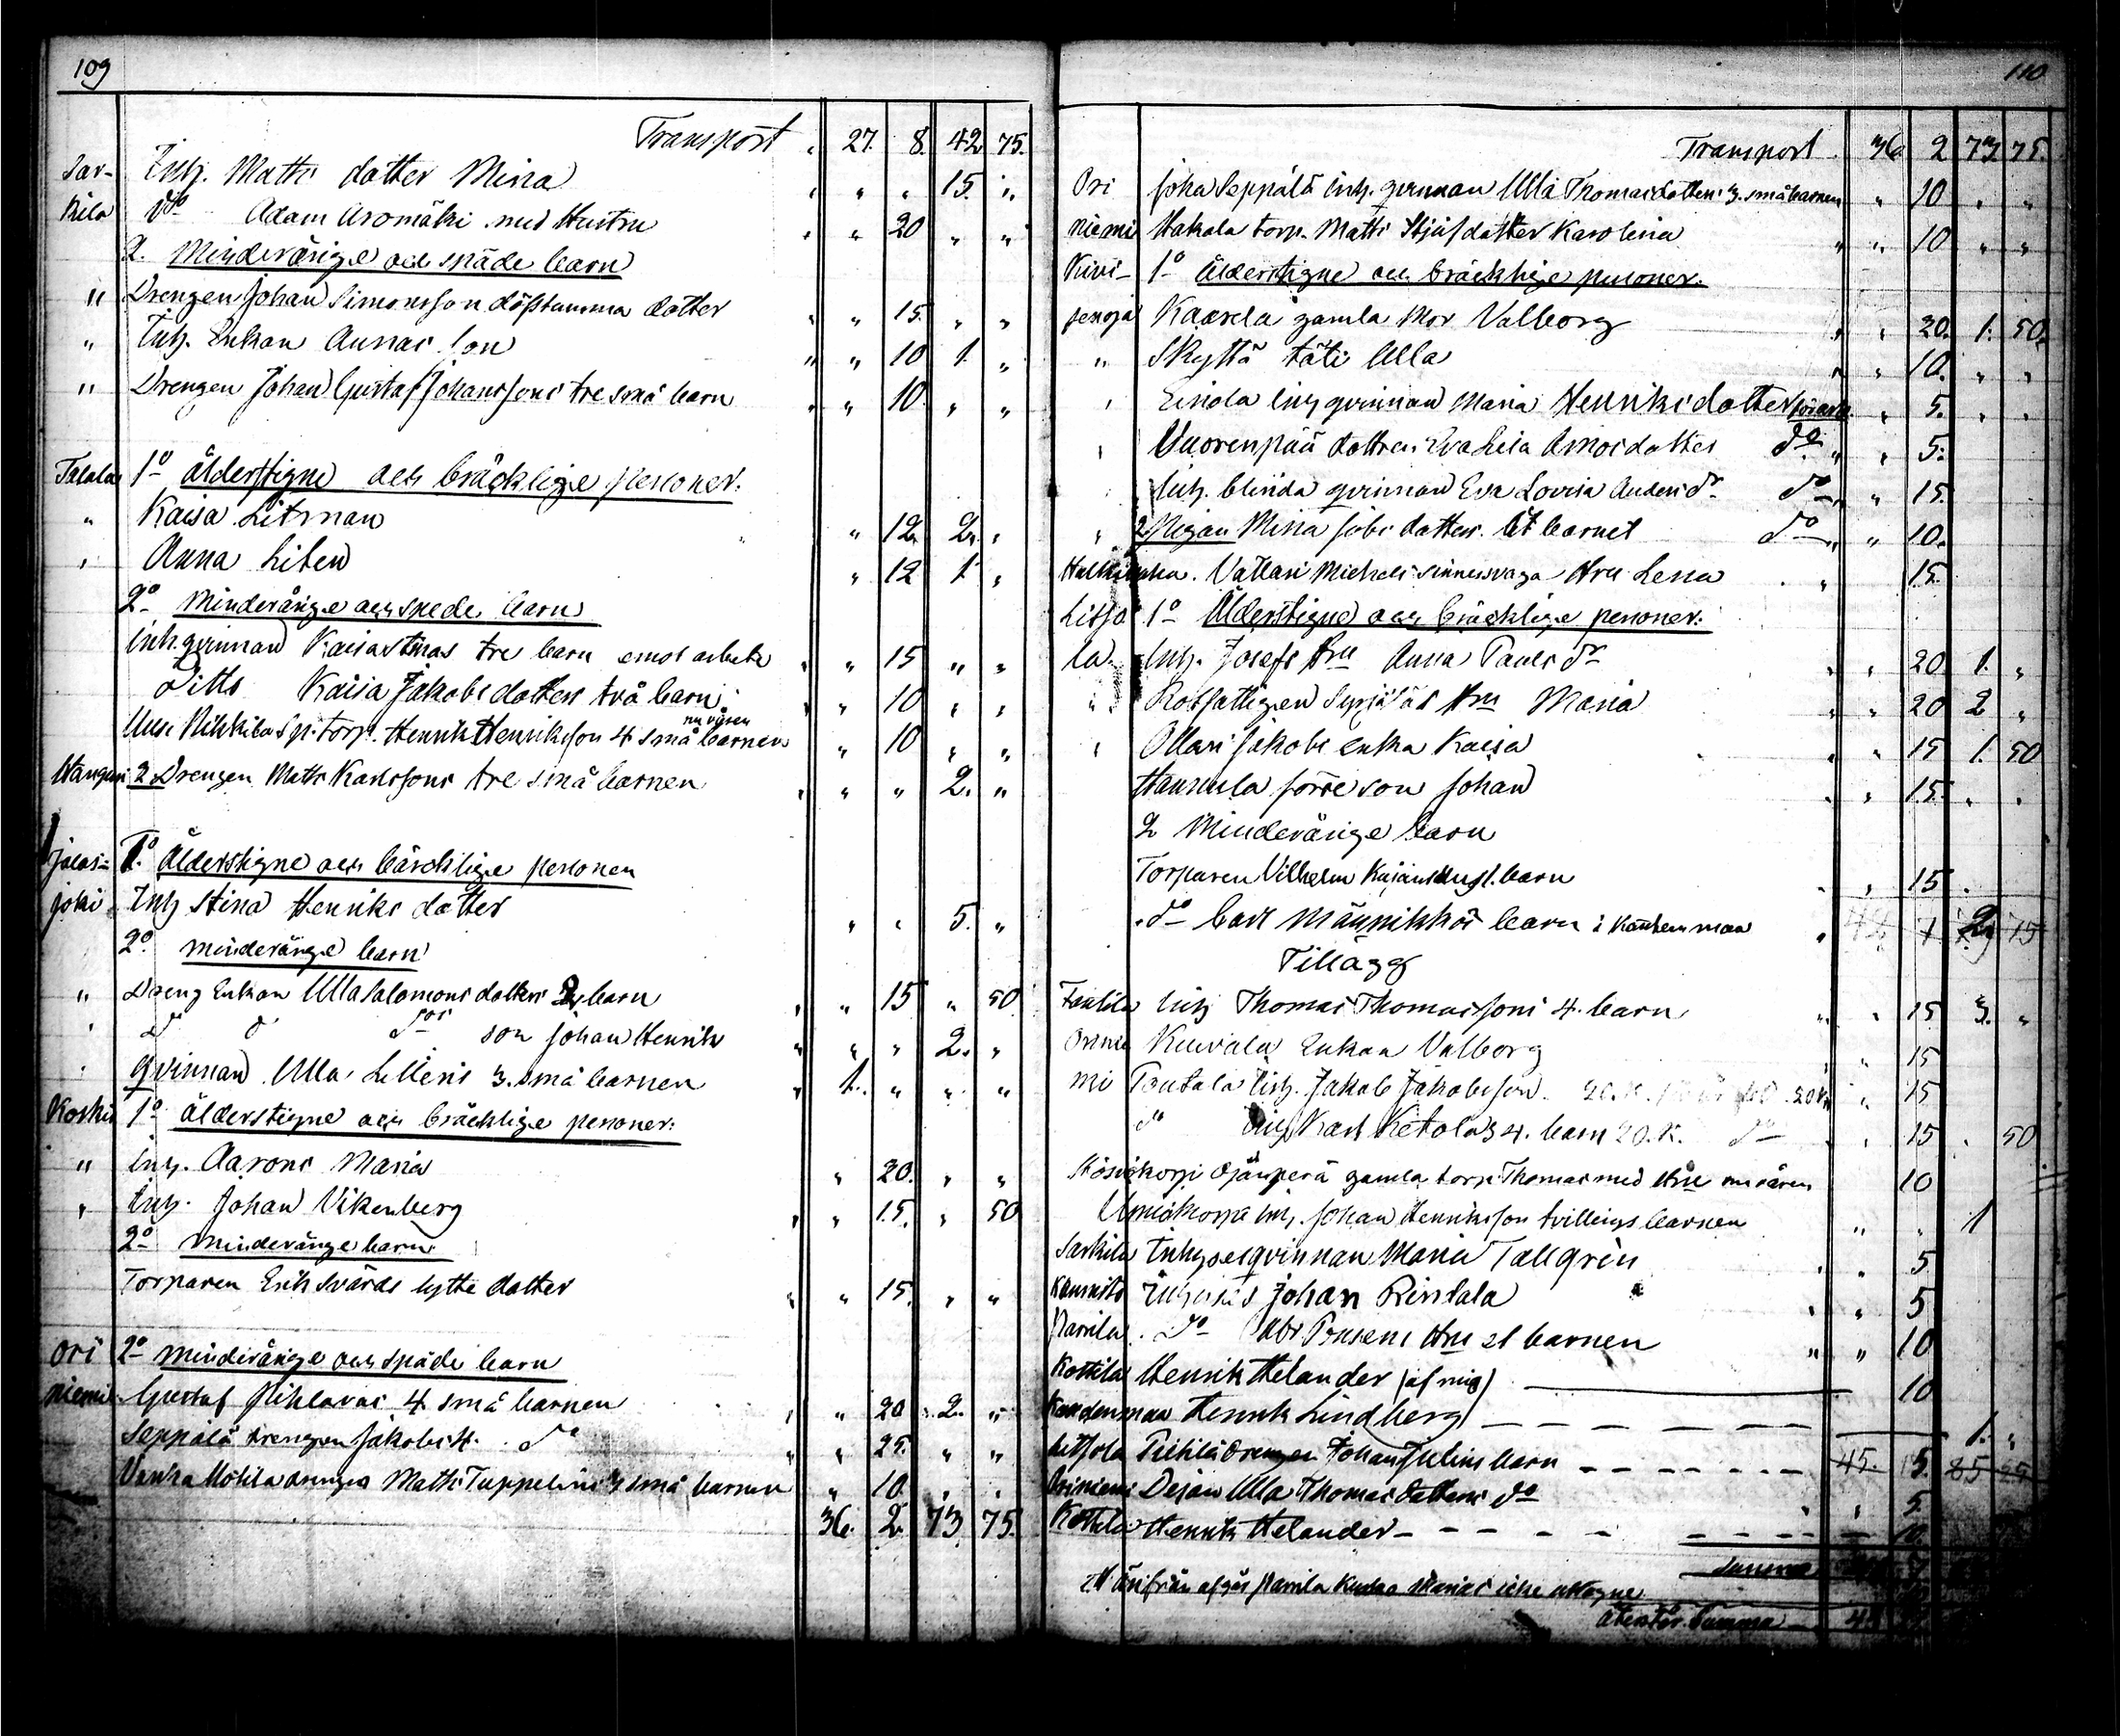 109
Transport " 27. 8. 42 75.
Sar- Inh. Matts dotter Mina " " " 15. "
kila Do Adam Aromäki med Hustru " " 20 " "
2. Minderårige och späde barn
" Drengen Johan Simonsson döfstumma dotter " " 15. " "
" Inh. Enkan Annas son " " 10 1. "
" Drengen Johan Gustaf Johanssons tre små barn " " 10. " "
Talala 1o ålderstigne och bräcklige personer.
" Kaisa Litman " 12. 2. "
" Anna Liten " 12 1. "
2o Minderårige och spede barn
inh. qvinnan Kaisa Stinas tre barn emot arbete " " 15 " "
Ditto Kaisa Jakobs dotters två barn " " 10 " "
nu våren
Uusi Pikkila Sp. torp. Henrik Henriksson 4 små barnen " 10 " "
2 Drengen Matts Karlssons tre små barnen " " " 2. "
Jalas- 1o Ålderstigne och bärcklige personer
joki Inh Stina Henriks dotter " " 5. "
2o minderårige barn
" Dreng Enkan Ulla Salomons dotters 2 barn " " 15 " 50
" D D Dos son Johan Henrik " " " 2. "
" qvinnan Ulla Lilleris 3. små barnen " 1. " " "
Koski 1o ålderstigne och bräcklige personer.
" inh. Aarons Maria " 20. " "
" inh. Johan Vikenberg " " 15. " 50
2o minderårige barn
Torparen Erik Svärds lytte dotter " " 15. " "
Ori 2o minderårige och späde barn
niemi Gustaf Pihlavas 4 små barnen " " 20 2. "
Seppälä drengen Jakobs 4. Do " " 25. " "
Matts Tuppelins 3 små barnen " 10. " "
36. 2. 73 75.
110
Transport 36 2 73 75.
Ori Joha Seppälä inh. qvinnan Ulla Thomasdotters 3. små barnen " 10 " "
niemi Hakala torp. Matts dotter Karolina " " 10 " "
Kivi- 1o Ålderstigne och bräcklige personer.
jenoja Kaarela gamla Mor Valborg " " 20. 1. 50.
" Skyttä täti Ulla " " 10. " "
" Einola inh qvinnan Maria Henriksdotter " 5. " "
" Vuorenpää dottren Eva Lisa Amosdotter do " " 5.
inh. blinda qvinnan Eva Lovisa Anders dr do " " 15.
" 2 Pigan Mina Jobs dotters ett barnet do " " 10.
Vattari Michels sinnessvaga Hru Lena " 15.
Litjo 1o Ålderstigne och bräcklige personer.
la. Inh. Josefs Hru Anna Pauls dr " " 20 1. "
" Rotfattigen Hru Maria " " 20 2 "
" Ollari Jakobs enka Kaisa " 15 1. 50
Hannula förre son Johan " " 15. " "
2 Minderårige barn
Torparen Vilhelm barn " " 15. "
do Carl Männikkös barn i Kanden maa " 1 2 15
Tillägg
inh Thomas Thomassons 4. barn " " 15 3. "
Orinie Knuvala Enkan Valborg " " 15
mi Tontala inh. Jakob Jakobsson. " 15
do inh Karl Ketolas 4. barn 20. K. do " 15 " 50
gamla torp. Thomas med Hru nu våren 10
inh. Johan Henriksson tvillings barnen " " 1
Sarkila Inhyses qvinnan Maria Tallgrén " " 5
Inhyses Johan Rintala " " 5
Parrila Do Hru et barnen " " 10
Kottila Henrik Helander (af mig) 10
Kandenmaa Henrik Lindberg 1. "
Litjola Peltilä drengen Johan Julius barn 45. 15. 85 25
Oriniemi Dejan Ulla Thomas dotters do " " 5
Kottila Henrik Helander 10.
Summa
Härifrån afgår Parrila Marias icke uttagne
återstår Summa